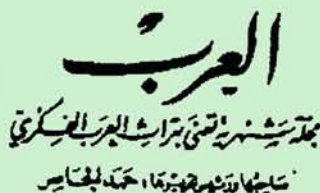 العرب
مجلة شهرية تعنى بتراث العرب الفكري
صاحبها ورئيس تحريرها: حمد الجاسر